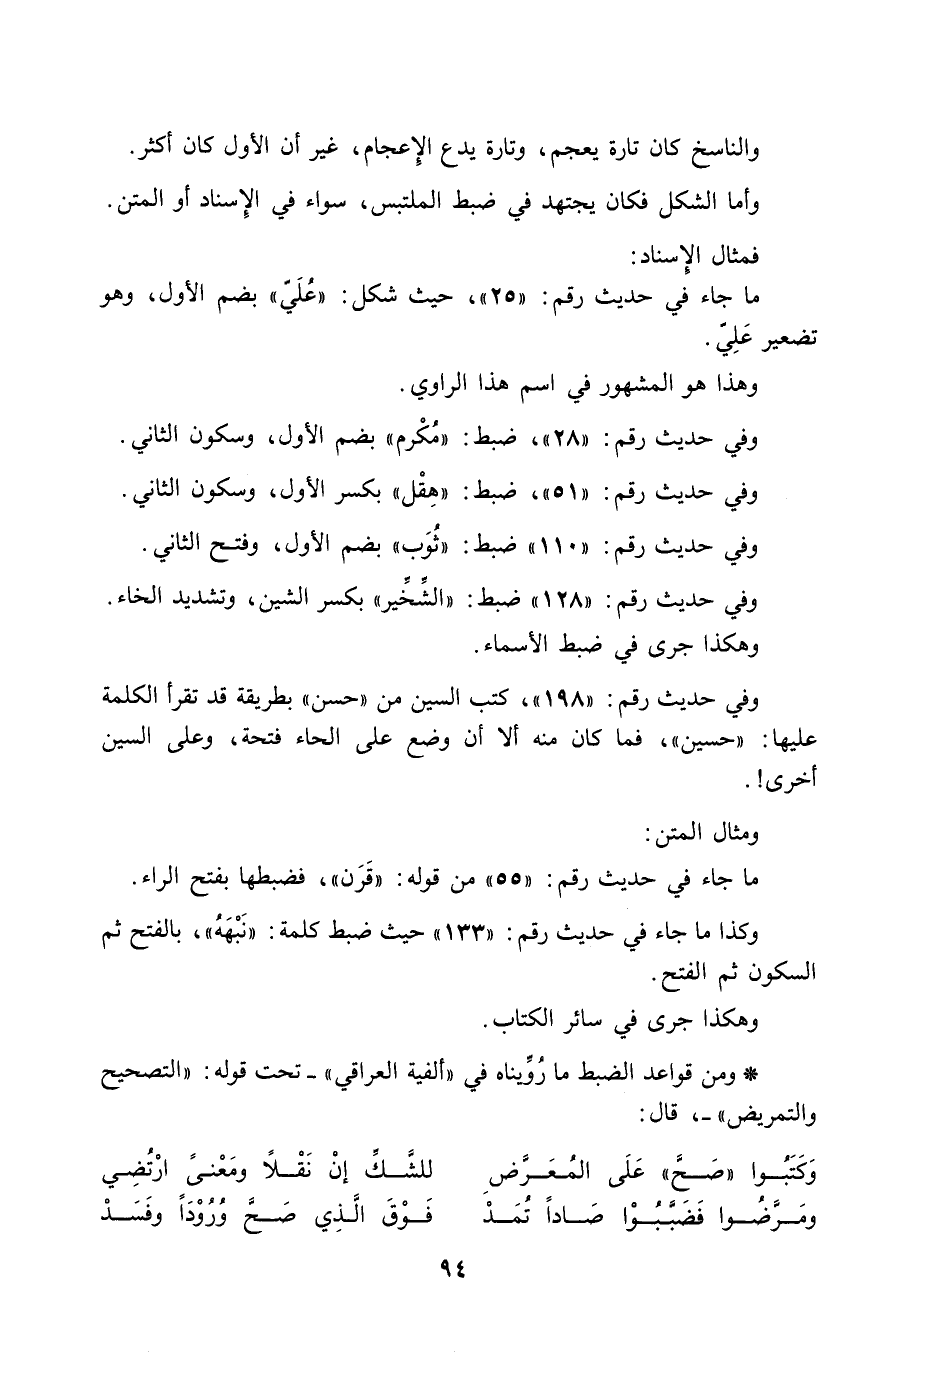 والناسخ كان تارة يعجم، وتارة يدع الإعجام، غير أن الأول كان أكثر.
وأما الشكل فكان يجتهد في ضبط الملتبس، سواء في الإسناد أو المتن.
فمثال الإسناد:
ما جاء في حديث رقم: «٢٥»، حيث شكل: «عُلَيّ» بضم الأول، وهو
تضعير عَلِيّ.
وهذا هو المشهور في اسم هذا الراوي.
وفي حديث رقم: «٢٨»، ضبط: «مُكْرم» بضم الأول، وسكون الثاني.
وفي حديث رقم: «٥١»، ضبط: «هِقْل» بكسر الأول، وسكون الثاني.
وفي حديث رقم: «١١٠» ضبط: «ثُوَب» بضم الأول، وفتح الثاني.
وفي حديث رقم: «١٢٨» ضبط: «الشِّخِّير» بكسر الشين، وتشديد الخاء.
وهكذا جرى في ضبط الأسماء.
وفي حديث رقم: «١٩٨»، كتب السين من «حسن» بطريقة قد تقرأ الكلمة
عليها: «حسين»، فما كان منه ألا أن وضع على الحاء فتحة، وعلى السين
أخرى!.
ومثال المتن:
ما جاء في حديث رقم: «٥٥» من قوله: «قَرَن»، فضبطها بفتح الراء.
وكذا ما جاء في حديث رقم: «١٣٣» حيث ضبط كلمة: «نَبْهَهُ»، بالفتح ثم
السكون ثم الفتح.
وهكذا جرى في سائر الكتاب.
* ومن قواعد الضبط ما رُوِّيناه في «ألفية العراقي» ـ تحت قوله: «التصحيح
والتمريض» ـ، قال:
وَكَتَبُــوا «صَــحَّ» عَلَى المُعَــرَّضِ للشَّــكِّ إنْ نَقْــلاً ومَعْنىً ارْتُضِــي
ومَــرَّضُــوا فَضَبَّبُــوْا صَــاداً تُمَــدْ فَــوْقَ الَّـذِي صَــحَّ وُرُوْدَاً وفَسَــدْ
٩٤